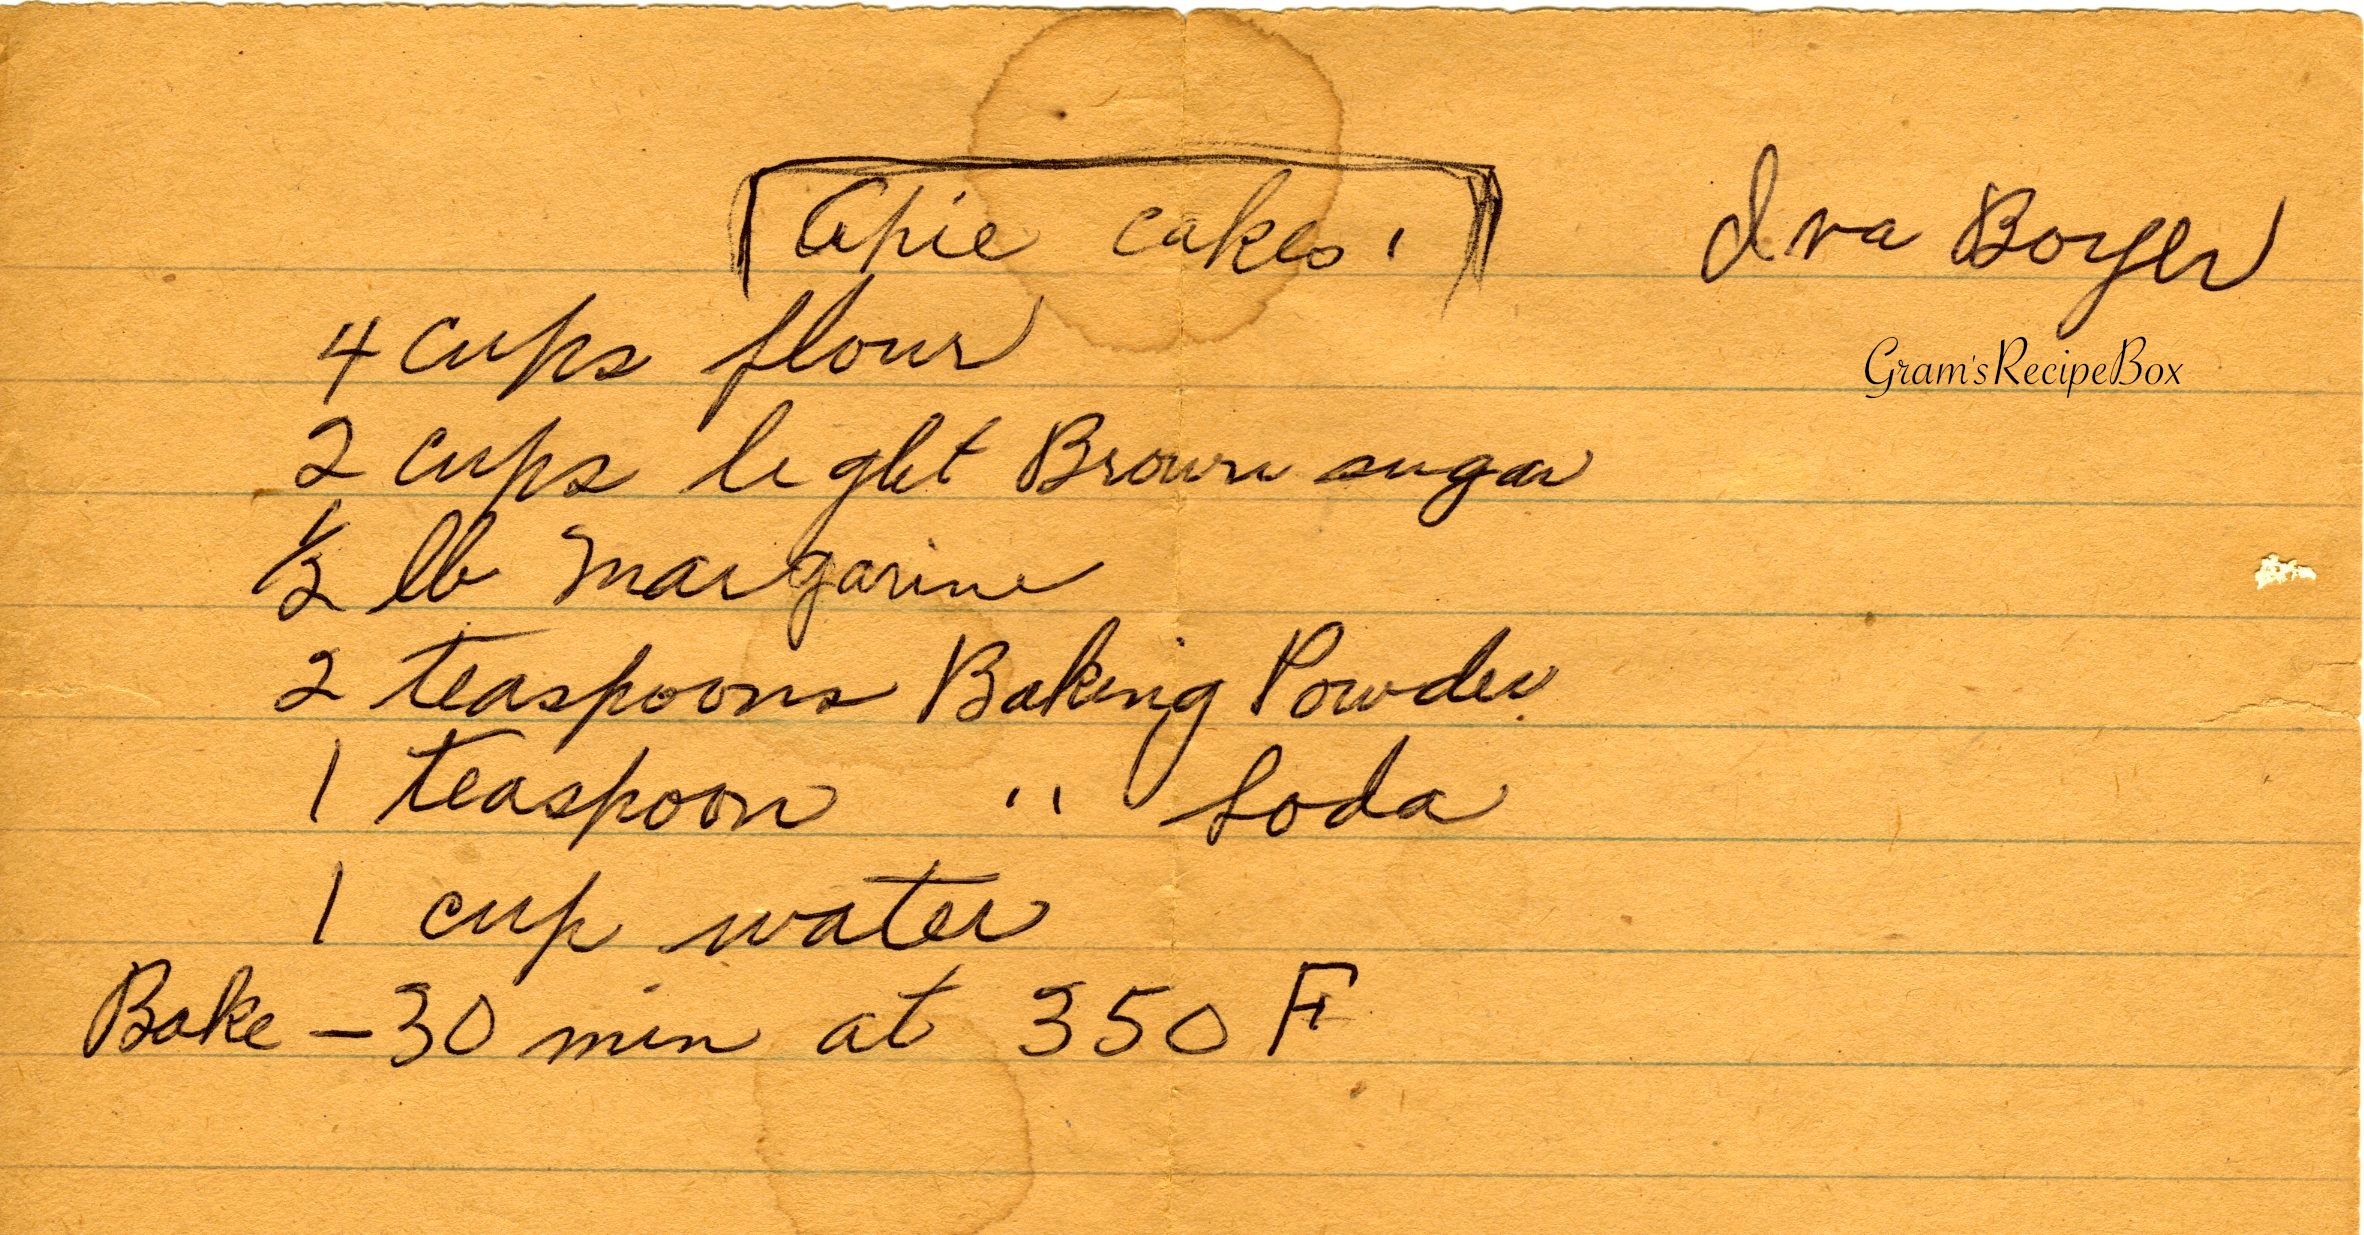 Apie cakes.
Iva Boyer
Gram'sRecipeBox
4 cups flour
2 cups light Brown sugar
1/2 lb margarine
2 teaspoons Baking Powder
1 teaspoon " Soda
1 cup water
Bake - 30 min at 350 F